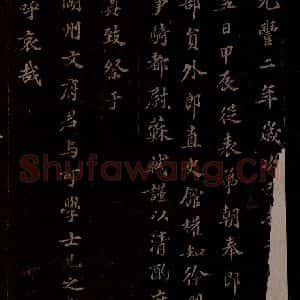 元豐二年歲
五日甲辰從表弟朝奉郎
部員外郎直史館權知徐州
事騎都尉蘇軾謹以清酌庶
奠致祭于
湖州文府君与可學士兄之
呼哀哉
Shufawang.CN